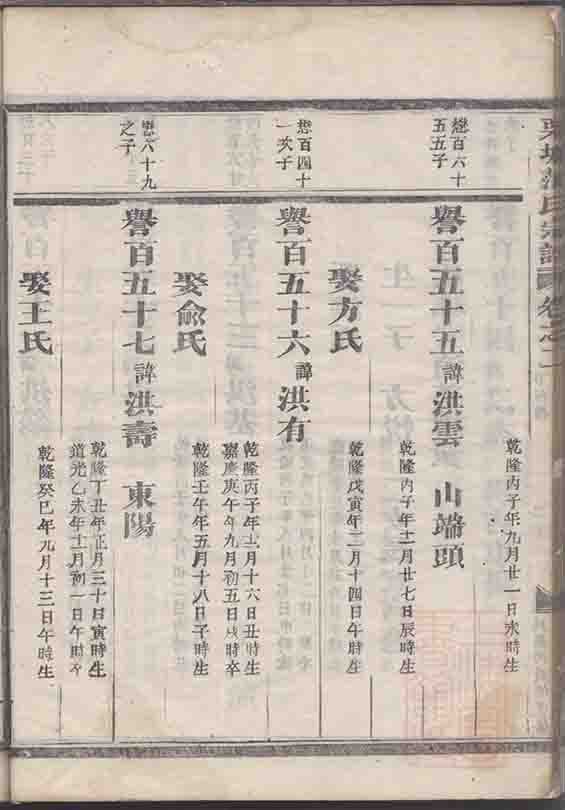 氏宗譜 卷之二
乾隆丙子年九月廿一日未時生
懋百六十
五五子
譽百五十五 諱洪雲 山端頭
乾隆丙子年十二月廿七日辰時生
娶方氏
乾隆戊寅年二月十四日午時生
懋百四十
一次子
譽百五十六 諱洪有
乾隆丙子年十二月十六日丑時生
嘉慶庚午年九月初五日戌時卒
娶俞氏
乾隆壬午年五月十八日子時生
懋六十九
之子
譽百五十七 諱洪壽 東陽
乾隆丁丑年正月三十日寅時生
道光乙未年十二月初一日午時卒
娶王氏
乾隆癸巳年九月十三日午時生